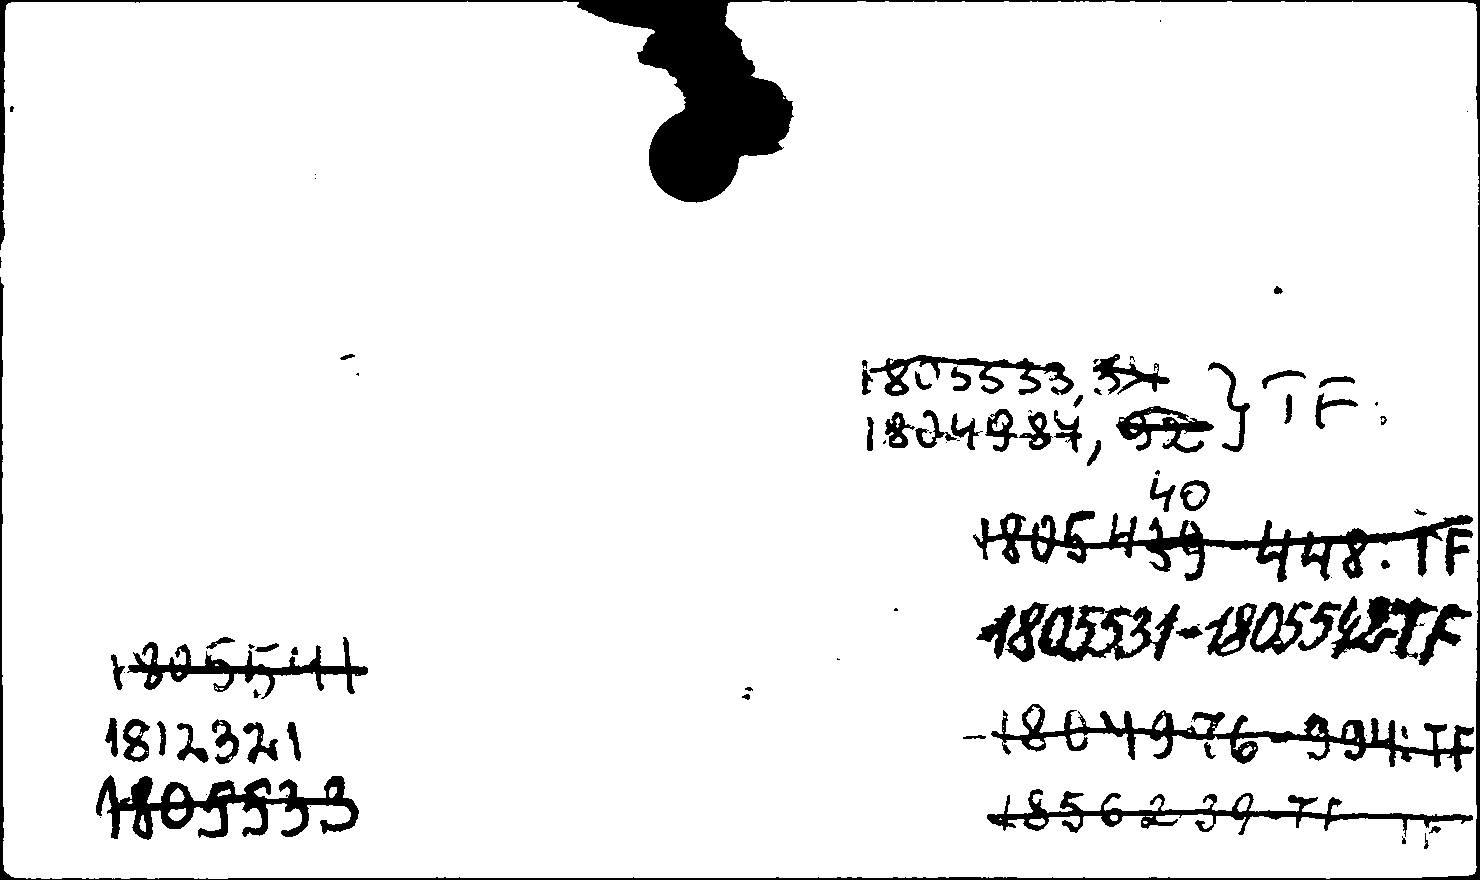 1805533, 34 } TF.
1804987, 92
40
1805439-448. TF
1805531-1805542 TF
1805541
1812321
-1804976-994. TF
1805533
1856239-TF TF